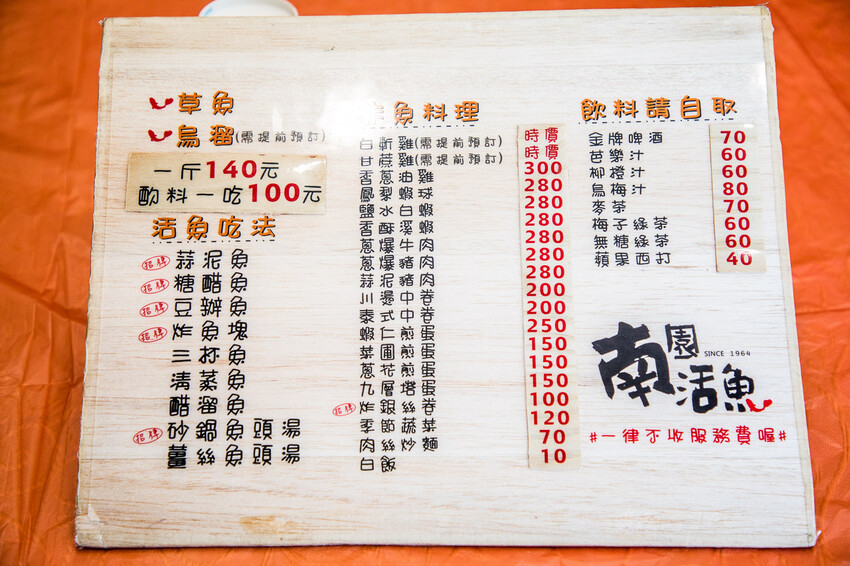 草魚
烏溜(需提前預訂)
一斤140元
料一吃100元
活魚吃法
招牌 蒜泥魚
招牌 糖醋魚
招牌 豆瓣魚
招牌 炸魚塊
三杯魚
清蒸魚
醋溜魚
招牌 砂鍋魚頭湯
薑絲魚頭湯
魚料理
白斬雞(需提前預訂) 時價
甘蔗雞(需提前預訂) 時價
香蔥油雞 300
鳳梨蝦球 280
鹽水白蝦 280
香酥溪蝦 280
蔥爆牛肉 280
蔥爆豬肉 280
蒜泥豬肉 280
川燙中卷 200
泰式中卷 200
蝦仁煎蛋 250
菜圃煎蛋 150
蔥花煎蛋 150
九層塔蛋 150
招牌 炸銀絲卷 100
季節蔬菜 120
肉絲炒麵 70
白飯 10
飲料請自取
金牌啤酒 70
芭樂汁 60
柳橙汁 60
烏梅汁 80
麥茶 70
梅子綠茶 60
無糖綠茶 60
蘋果西打 40
南園活魚
SINCE 1964
#一律不收服務費喔#